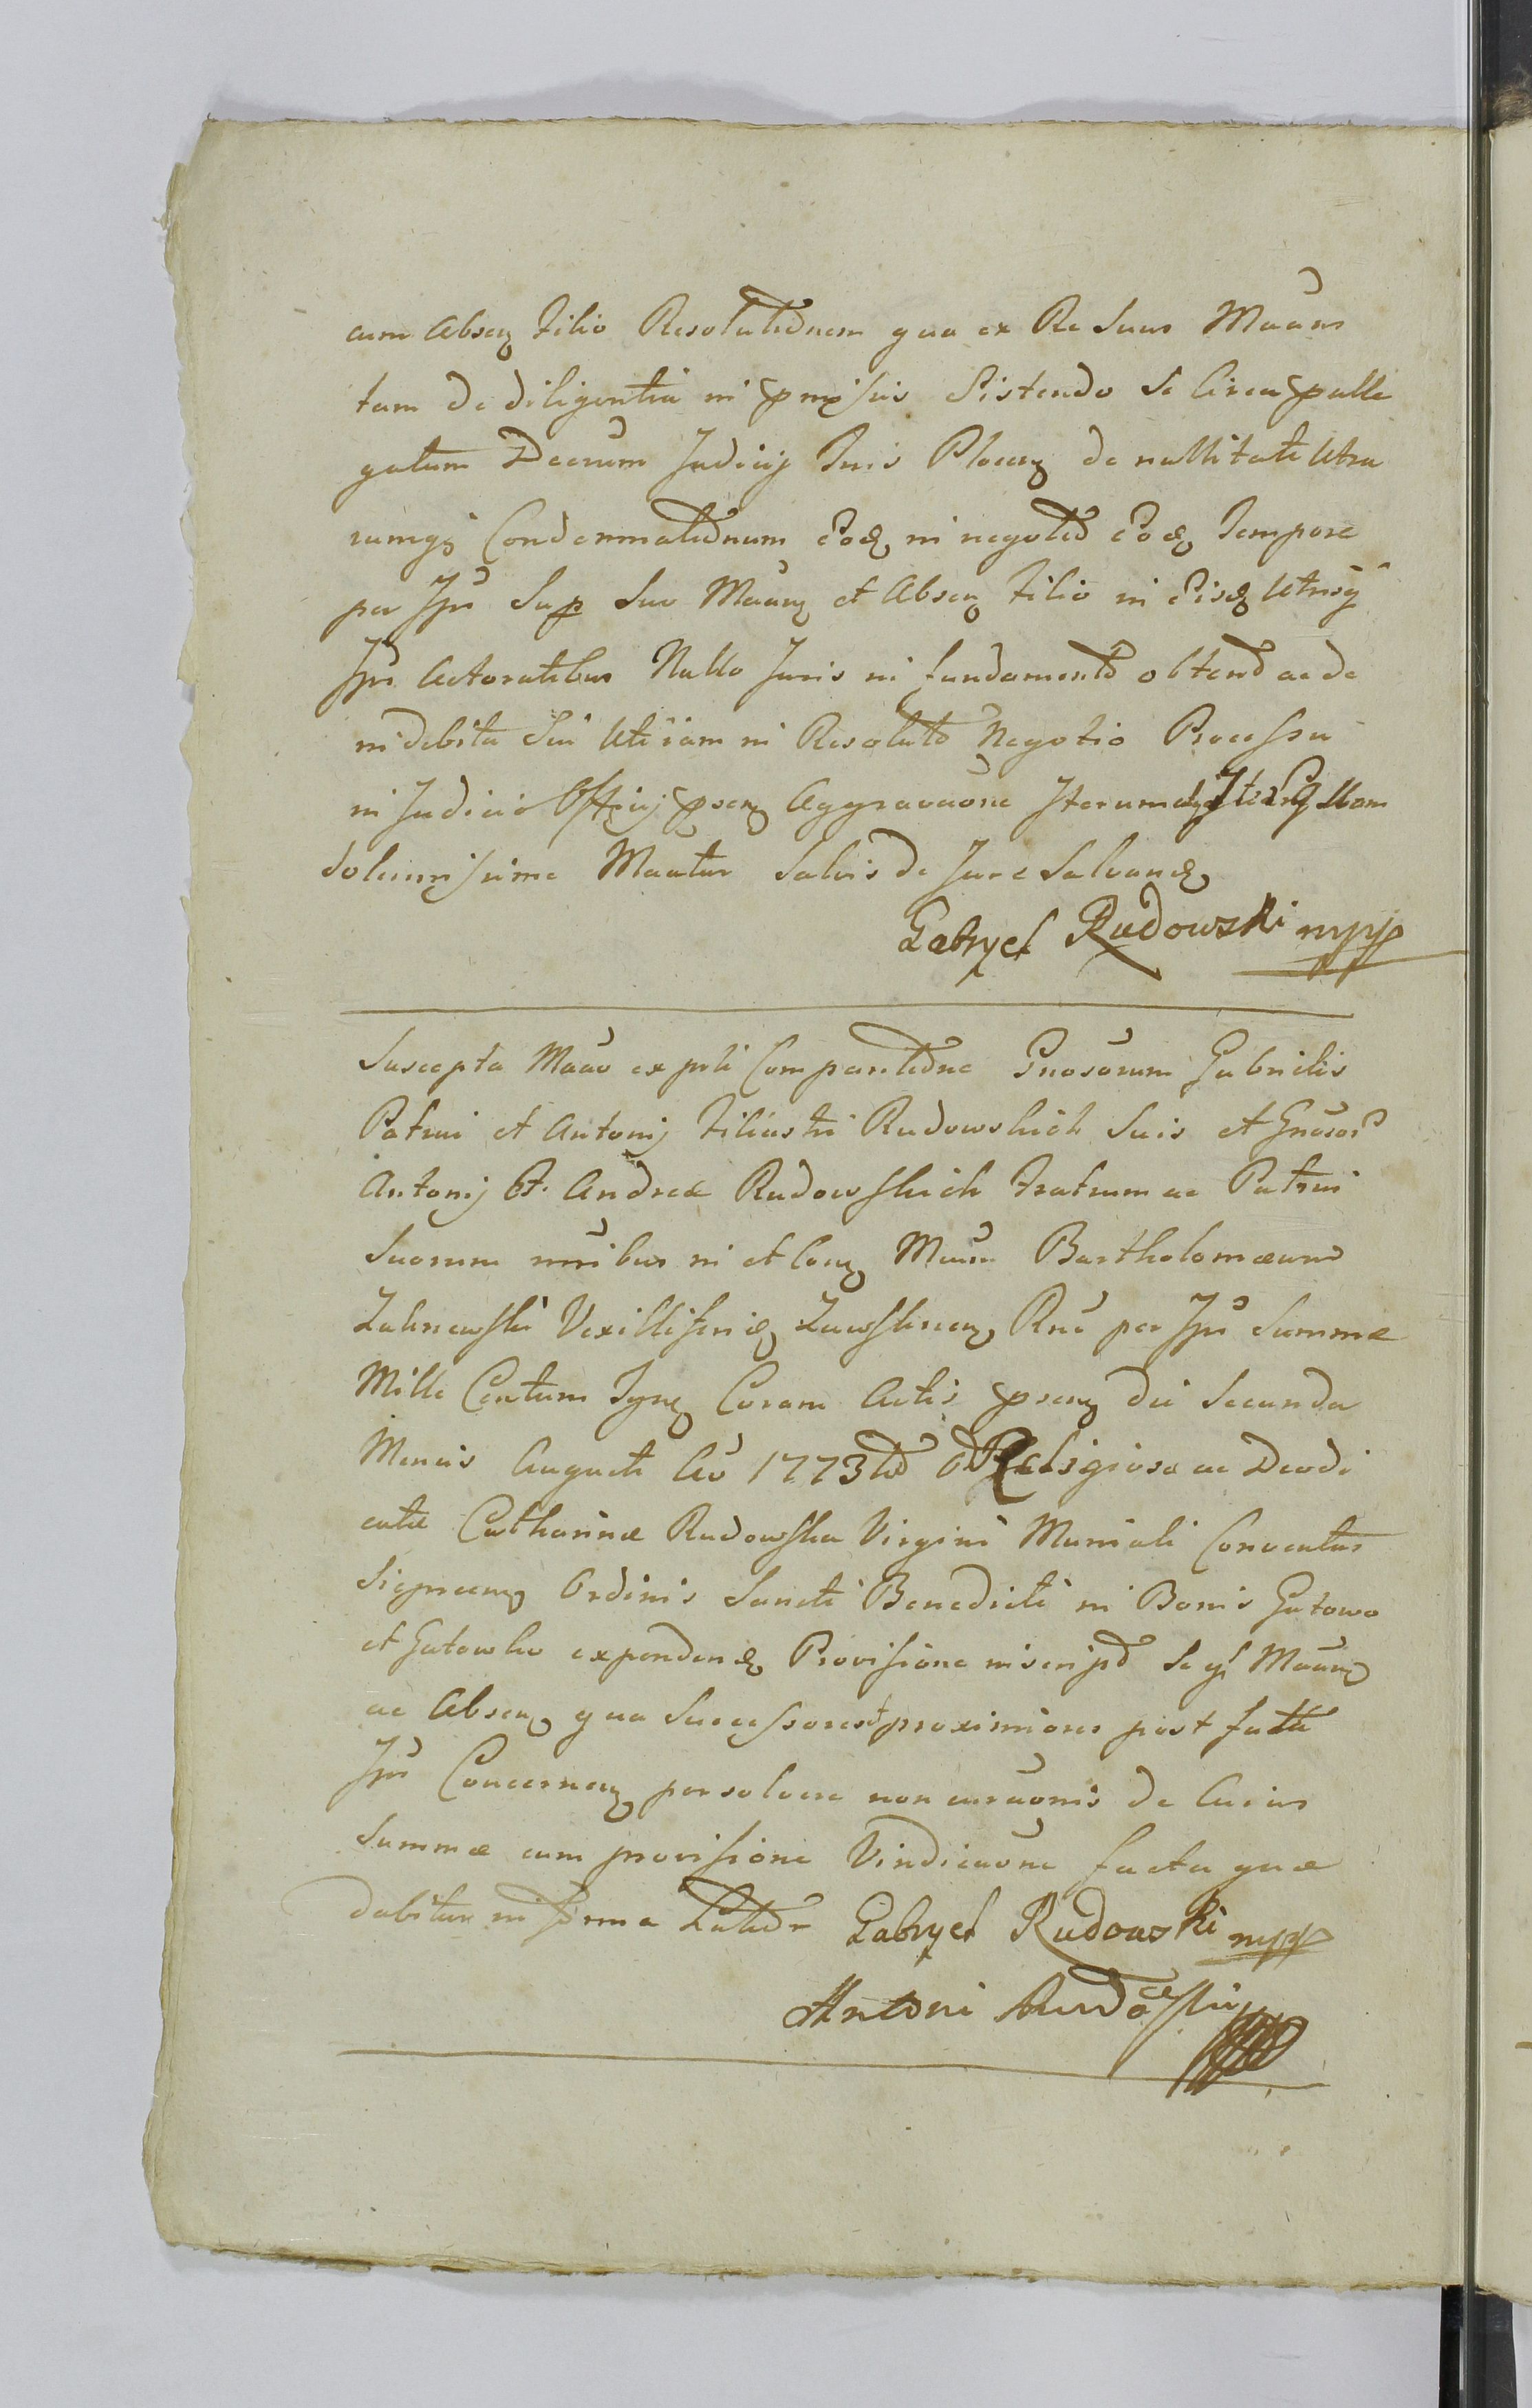 cum Absen Filio Resolutionem qua ex Re Suus Maans
tam de diligentia in pmissis Sistendo se Circa palle
gatum Decrum Judicij Tris Plocen de nullitate Utra
rumq Condemnationum Eod in negotio Eod Tempore
per Ips Sup Suo Maan et Absen Filio in Eisd Utrisq
Ips Actoratibus Nullo Juris in fundamento obtent ac de
indebita Sui Uteriam in Resoluto Negotio Processu
in Judicio Officij psen Aggravaone Iterum
Solennissime Maatur Salvis de Jure Salvand
Gabryel Rudowski mpp
Suscepta Maao ex psli Comparitione Gnosorum Gabrielis
Patrui et Antonij Filiastri Rudowskich Suis et Gnosor
Antonij et Andreæ Rudowskich Fratrum ac Patrui
Suorum nnibus in et Con Mcum Bartholomæum
Zakrzewski Vexilliferid Zawskrnen Rne per Ips Summæ
Mille Centum Tynf Coram Actis psen die Secunda
Mensis Augusti Ao 1773tio Religiosæ ac Deodi
catæ Catharinæ Rudowska Virgini Moniali Conventus
Sierpcen Ordinis Sancti Benedicti in Bonis Gutowo
et Gutowko expendend Provisione inscript Se qd Maan
ac Absen qua Successores proximiores post fata
Ips Concernen persolvere non curaonis de Cuius
Summæ cum provisione Vindicaone facta quæ
dabitur in forma Latior Gabryel Rudowski mpp
Antoni Rudowski